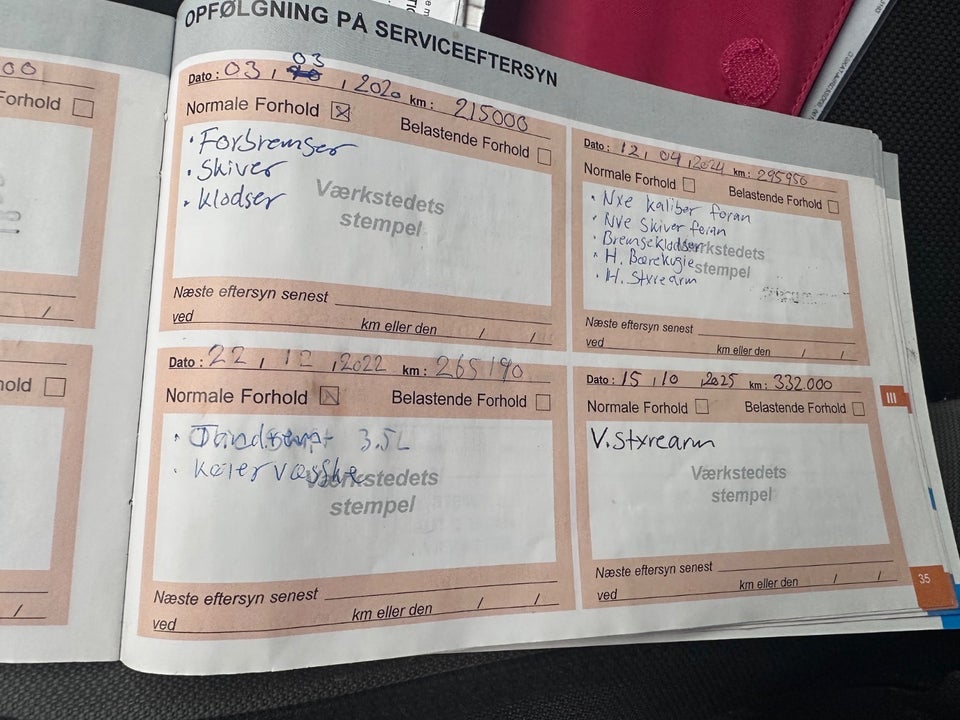 OPFØLGNING PÅ SERVICEEFTERSYN
Dato : 03 , 03 , 2020 km : 215000
Normale Forhold ☒
Belastende Forhold ☐
• Forbremser
• Skiver
• klodser
Værkstedets
stempel
Næste eftersyn senest
ved km eller den / /
Dato : 12 , 04 , 2024 km : 295950
Normale Forhold ☐ Belastende Forhold ☐
• Nye kaliber foran
• Nye Skiver foran
• Bremseklodser
• H. Bærekugle
• H. Styrearm
Værkstedets
stempel
Næste eftersyn senest
ved km eller den / /
Dato : 22 , 12 , 2022 km : 265190
Normale Forhold ☒ Belastende Forhold ☐
• 3.5L
• Køler væsske
Værkstedets
stempel
Næste eftersyn senest
ved km eller den / /
Dato : 15 , 10 , 2025 km : 332.000
Normale Forhold ☐ Belastende Forhold ☐
V. styrearm
Værkstedets
stempel
Næste eftersyn senest
ved km eller den / /
III
35
00
Forhold ☐
/
hold ☐
/